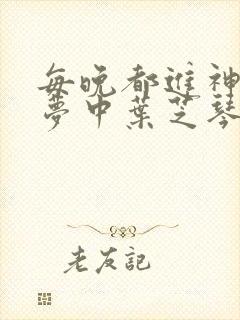 每晚都進神
夢中葉芝琴
老友記